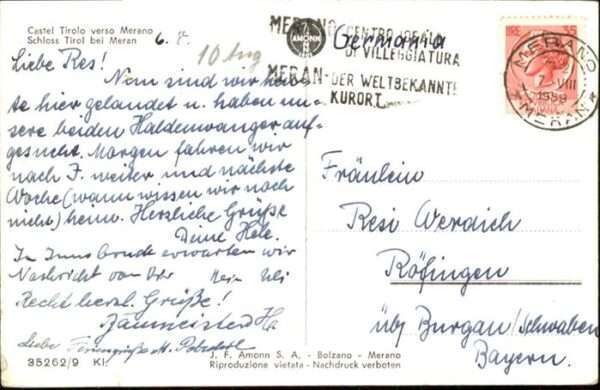 Castel Tirolo verso Merano
Schloss Tirol bei Meran
6. 8.
10 Aug
MERANO CENTRO IDEALE
DI VILLEGGIATURA
AMONN
MERAN - DER WELTBEKANNTE
KURORT
Germania
LIRE 25
MERANO
VIII
1959
* MERAN *
Liebe Resi!
Nun sind wir heu-
te hier gelandet u. haben un-
sere beiden Haldenwanger auf-
gesucht. Morgen fahren wir
nach I. weiter und nächste
Woche (wann wissen wir noch
nicht) heim. Herzliche Grüße
Deine Hele.
In Innsbruck erwarten wir
Nachricht von Dir
Recht herzl. Grüße!
Baumeister
Liebe Feriengrüße M.
Fräulein
Resi Werdich
Röfingen
üb/ Burgau/Schwaben
Bayern.
J. F. Amonn S. A. - Bolzano - Merano
Riproduzione vietata - Nachdruck verboten
35262/9 Kl.